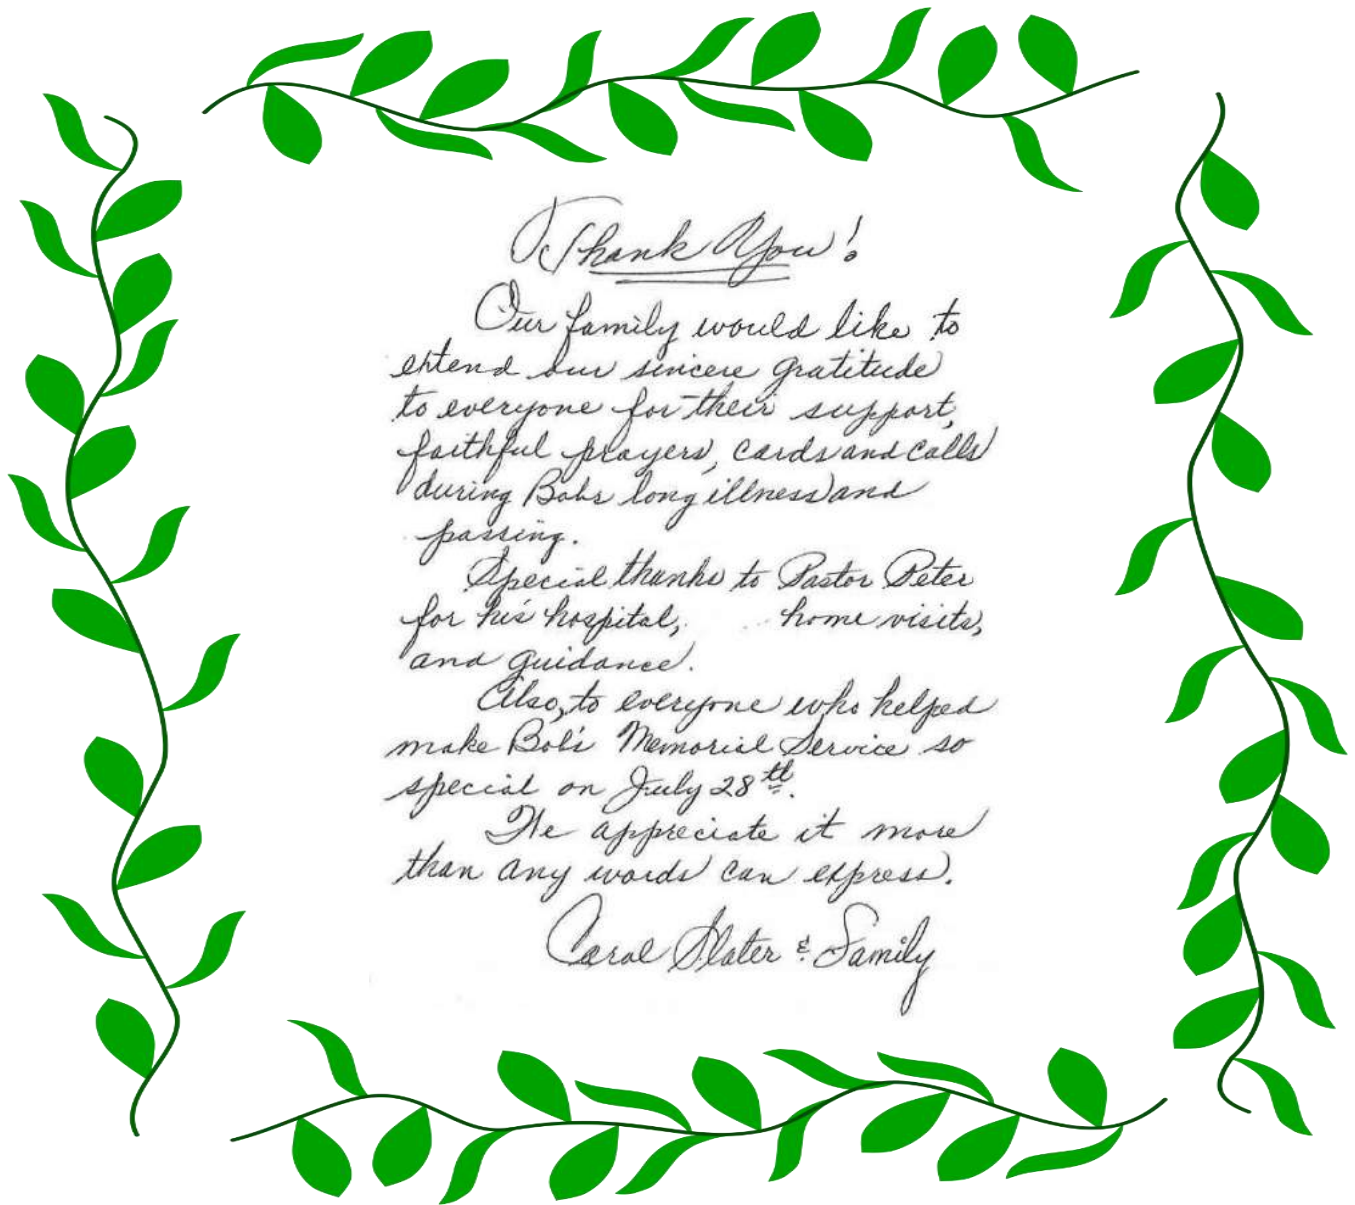 Thank You!
Our family would like to
extend our sincere gratitude
to everyone for their support,
faithful prayers, cards and calls
during Bobs long illness and
passing.
Special thanks to Pastor Peter
for his hospital, home visits,
and guidance.
Also, to everyone who helped
make Bob's Memorial Service so
special on July 28th.
We appreciate it more
than any words can express.
Carol Slater & Family